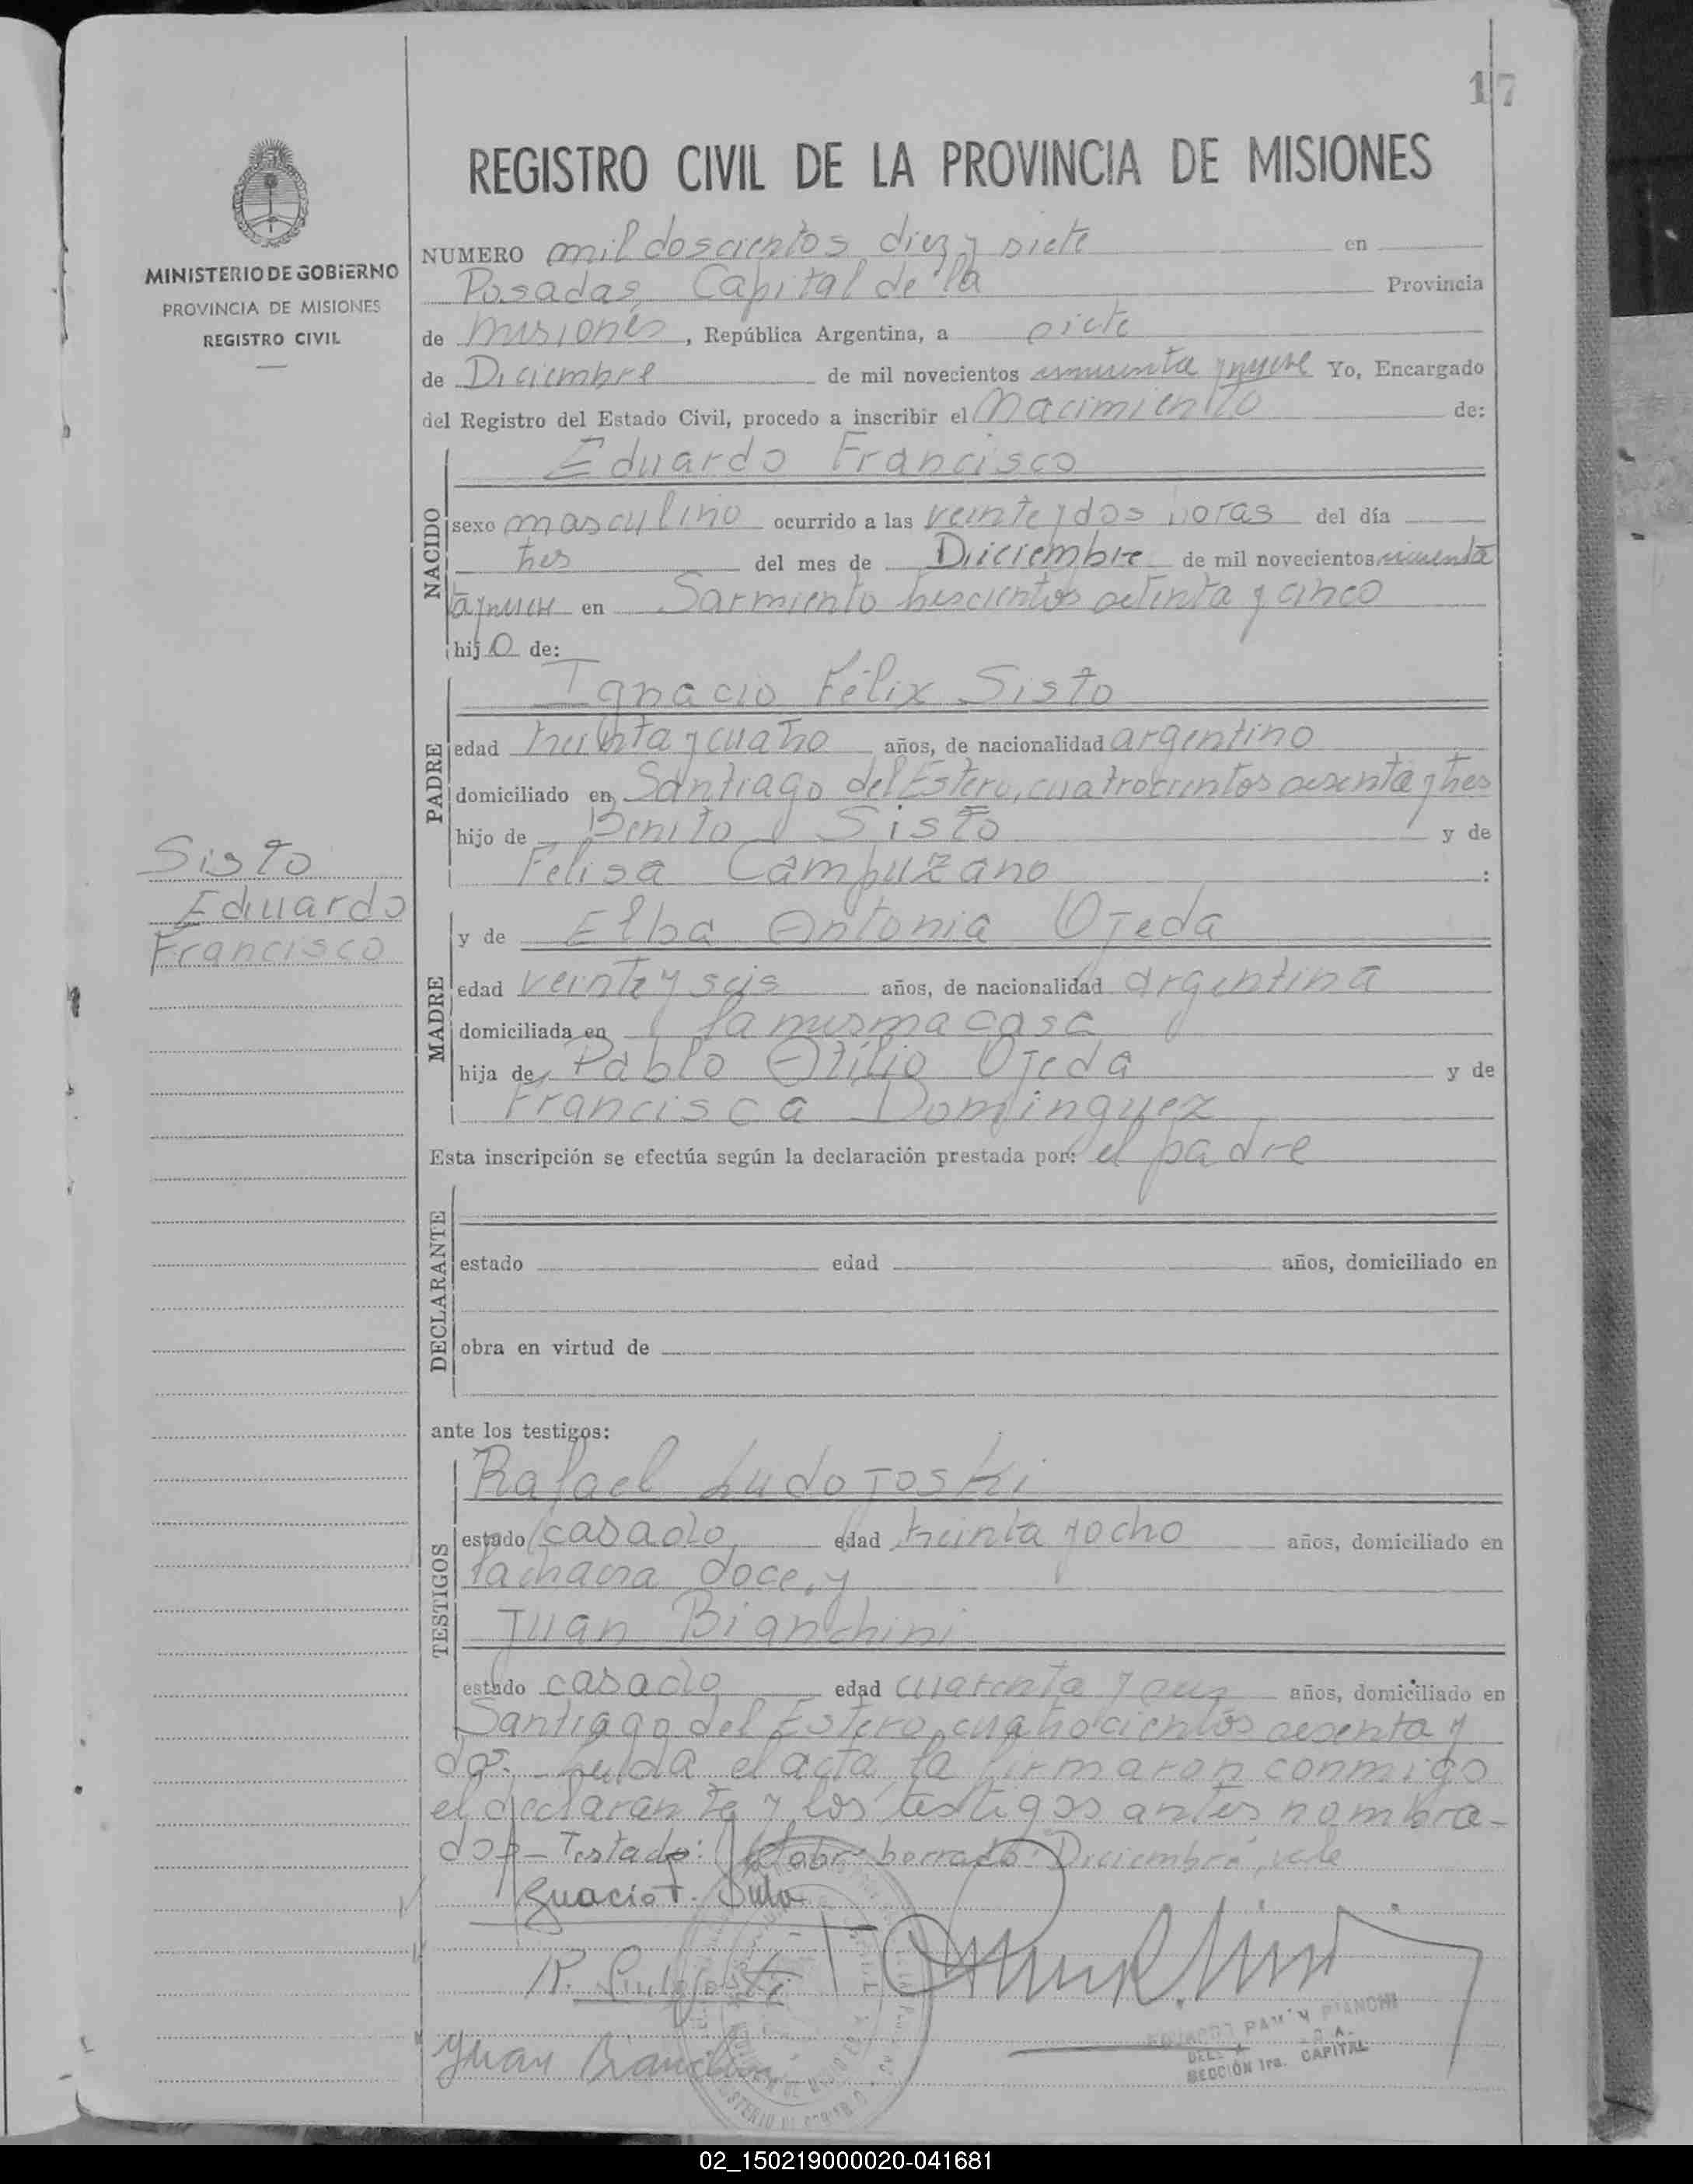 17
REGISTRO CIVIL DE LA PROVINCIA DE MISIONES
MINISTERIO DE GOBIERNO
PROVINCIA DE MISIONES
REGISTRO CIVIL
NUMERO mil doscientos diez y siete en
Posadas, Capital de la Provincia
de Misiones, República Argentina, a siete
de Diciembre de mil novecientos cincuenta y nueve Yo, Encargado
del Registro del Estado Civil, procedo a inscribir el Nacimiento de:
NACIDO
Eduardo Francisco
sexo masculino ocurrido a las veinte y dos horas del día
tres del mes de Diciembre de mil novecientos
y nueve en Sarmiento trescientos setenta y cinco
hijo de:
PADRE
Ignacio Félix Sisto
edad treinta y cuatro años, de nacionalidad argentino
domiciliado en Santiago del Estero, cuatrocientos sesenta y tres
hijo de Benito Sisto y de
Felisa Campuzano :
Sisto
Eduardo
Francisco
MADRE
y de Elba Antonia Ojeda
edad veinte y seis años, de nacionalidad argentina
domiciliada en la misma casa
hija de Pablo Otilio Ojeda y de
Francisca Dominguez
Esta inscripción se efectúa según la declaración prestada por: el padre
DECLARANTE
estado edad años, domiciliado en
obra en virtud de
ante los testigos:
TESTIGOS
Rafael Ludojoski
estado casado edad treinta y ocho años, domiciliado en
la chacra doce, y
Juan Bianchini
estado casado edad cuarenta y años, domiciliado en
Santiago del Estero, cuatrocientos sesenta y
dos. Leida el acta, la firmaron conmigo
el declarante y los testigos antes nombra-
dos - Testado: borrado: Diciembre, vale
Ignacio F. Sisto
R. Ludojoski
Juan Bianchini
EDUARDO RAMON BIANCHI
SECCIÓN 1ra. CAPITAL
02_150219000020-041681